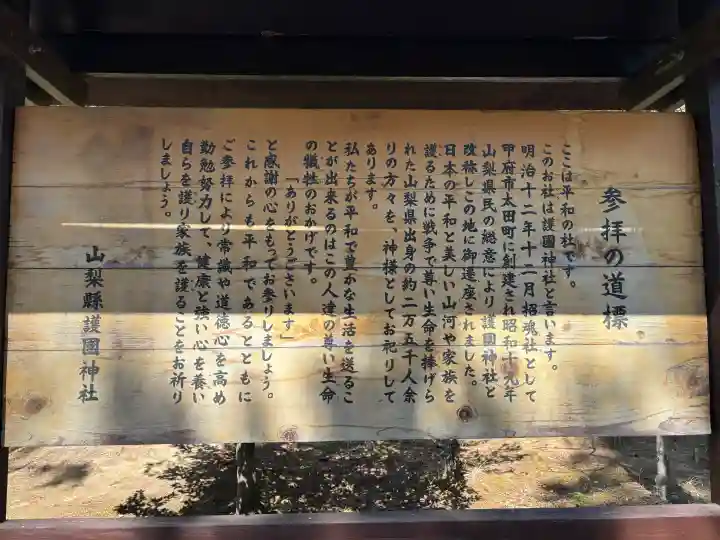 参拝の道標
ここは平和の杜です。
このお社は護國神社と言います。
明治十二年十二月招魂社として
甲府市太田町に創建され昭和十九年
山梨県民の総意により護國神社と
改称しこの地に御遷座されました。
日本の平和と美しい山河や家族を
護るために戦争で尊い生命を捧げら
れた山梨県出身の約二万五千人余
りの方々を、神様としてお祀りして
あります。
私たちが平和で豊かな生活を送るこ
とが出来るのはこの人達の尊い生命
の犠牲のおかげです。
「ありがとうございます」
と感謝の心をもってお参りしましょう。
これからも平和であるとともに
ご参拝により常識や道徳心を高め
勤勉努力して、健康と強い心を養い
自らを護り家族を護ることをお祈り
しましょう。
山梨縣護國神社